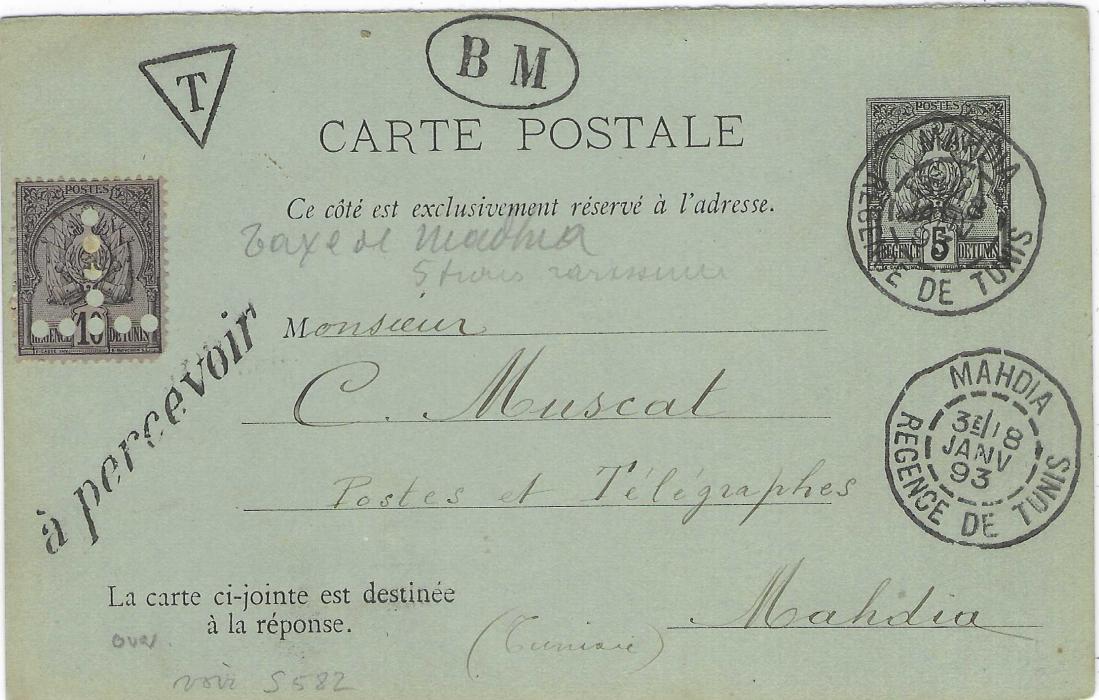 T
B M
CARTE POSTALE
POSTES
MAHDIA
JANV
93
REGENCE DE TUNIS
5
REGENCE DE TUNIS
Ce côté est exclusivement réservé à l'adresse.
POSTES
10
REGENCE DE TUNIS
Taxe de Mahdia
5 trous rarissime
à percevoir
Monsieur
C. Muscat
Postes et Télégraphes
MAHDIA
3E/18
JANV
93
REGENCE DE TUNIS
La carte ci-jointe est destinée
à la réponse.
Mahdia
(Tunisie)
voir S 582